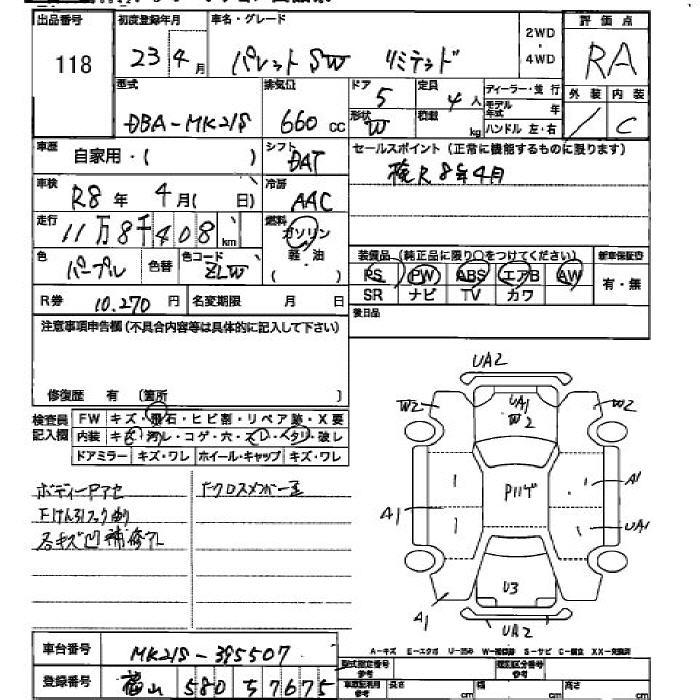 出品番号 初度登録年月 車名・グレード 2WD・4WD 評価点
118 23年4月 パレットSW リミテッド RA
型式 排気量 ドア 定員 ディーラー・並行 外装 内装
DBA-MK21S 660cc 5 4人 モデル年式 年 / C
形状 W 積載 kg ハンドル 左・右
車歴 自家用・( ) シフト DAT セールスポイント (正常に機能するものに限ります)
車検 R8年 4月( 日) 冷房 AAC 検R8年4月
走行 11万8千408km 燃料 ガソリン 軽・油 ( )
色 パープル 色替 色コード ZLW 装備品 (純正品に限り○をつけてください) 新車保証書
PS PW ABS エアB AW 有・無
SR ナビ TV カワ
R券 10,270円 名変期限 月 日 後日品
注意事項申告欄 (不具合内容等は具体的に記入して下さい)
修復歴 有 (箇所 )
検査員記入欄 FW キズ・飛石・ヒビ割・リペア跡・X要
内装 キズ・汚レ・コゲ・穴・スレ・ヘタリ・破レ
ドアミラー キズ・ワレ ホイール・キャップ キズ・ワレ
UA2
W2 UA1 W2 W2
A1 A1
UA1
U3
A1 UA2
A-キズ E-エクボ U-凹み W-補修跡 S-サビ C-腐食 XX-交換済
車台番号 MK21S-395507
登録番号 福山 580 ち 7675
型式指定番号 参考 類別区分番号 参考
長さ cm 幅 cm 高さ cm